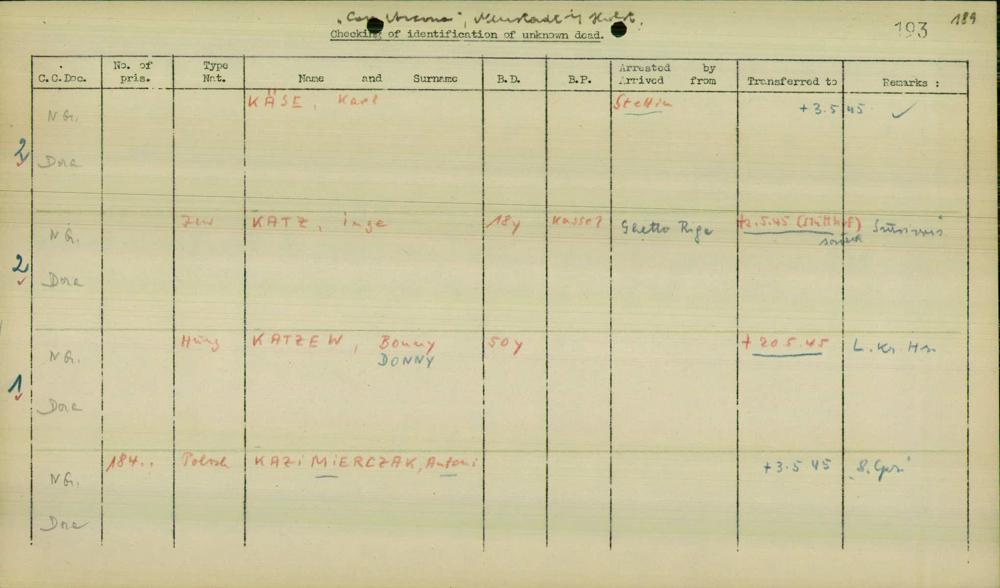 "Cap Arcona", Neustadt i/ Holst. 189
Checking of identification of unknown dead. 193
C.C.Doc. No. of pris. Type Nat. Name and Surname B.D. B.P. Arrested by Arrived from Transferred to Remarks :
NG. KÄSE, Karl Stettin +3.5.45 ✓
2 Dora
NG. Jew KATZ, inge 18y Kassel Ghetto Riga +2.5.45 (Stutthof)
2 Dora
NG. Hung KATZEW, Bonny 50y +20.5.45 L. Kr. Hs.
DONNY
1 Dora
NG. 184.. Polnsh KAZiMIERCZAK, Antoni +3.5.45
Dora